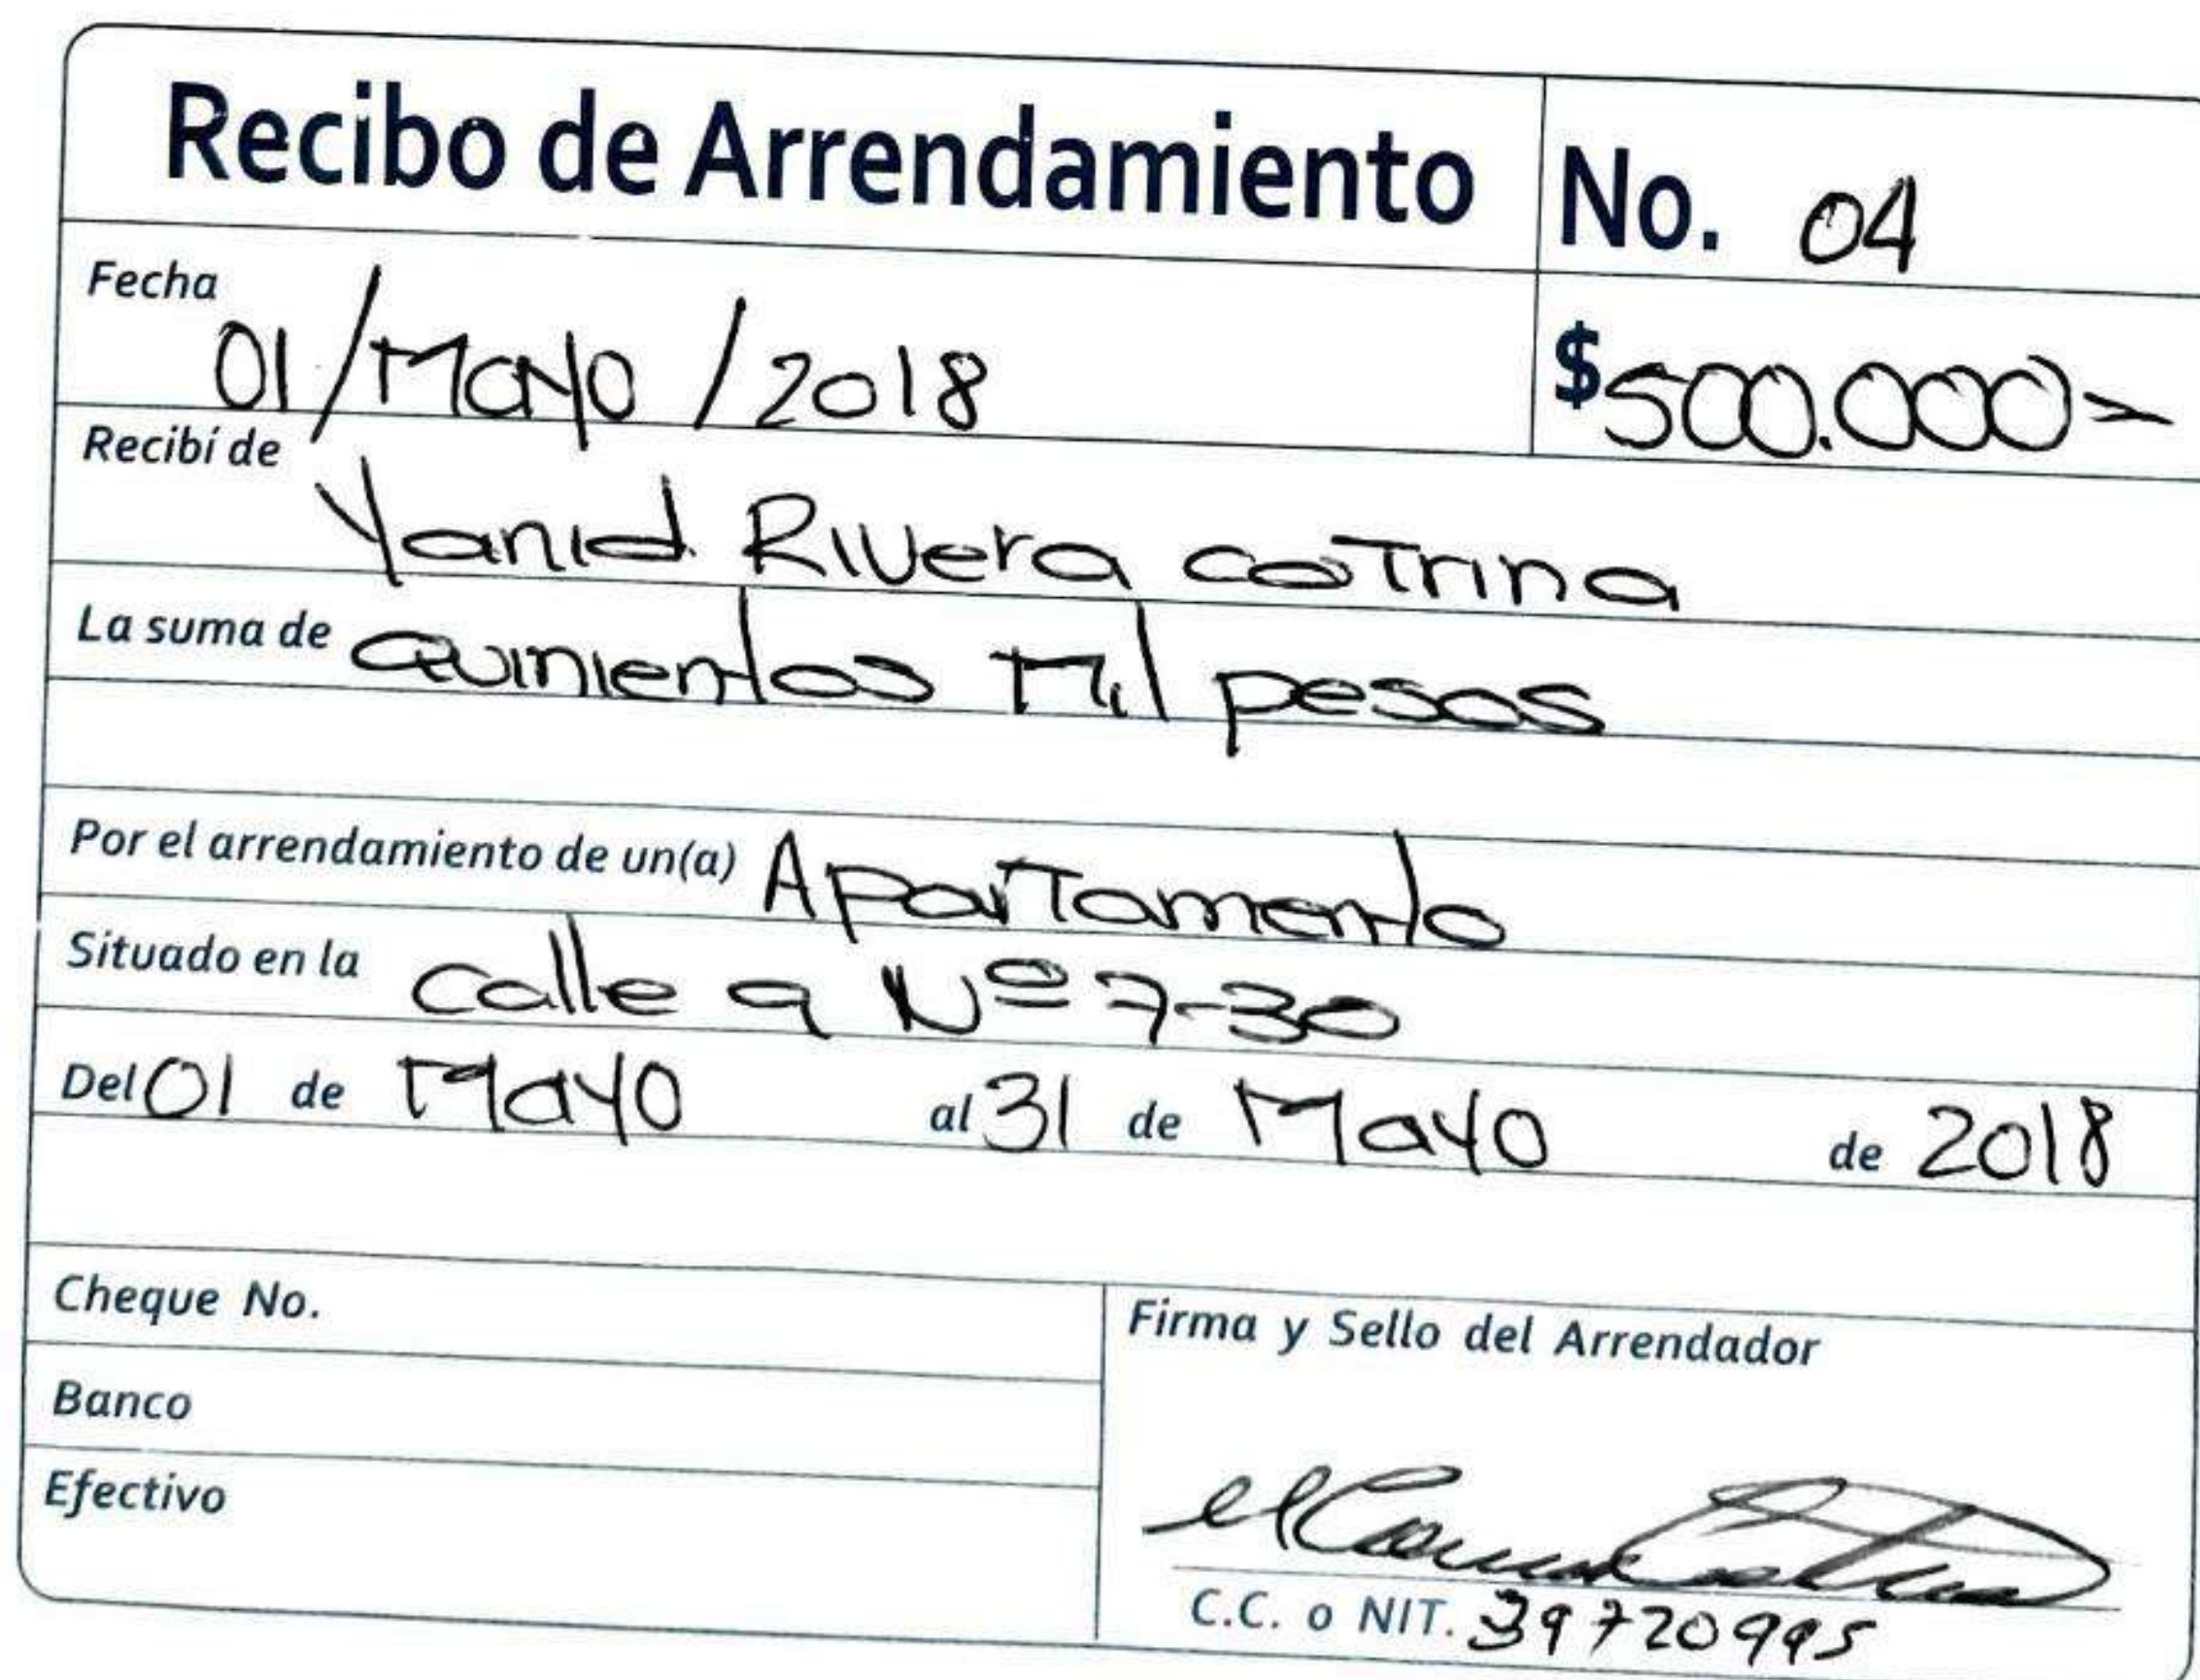 Recibo de Arrendamiento No. 04
Fecha 01/Mayo/2018 $500.000=
Recibí de Yanid Rivera Cotrina
La suma de Quinientos Mil pesos
Por el arrendamiento de un(a) Apartamento
Situado en la Calle 9 Nº 7-30
Del 01 de Mayo al 31 de Mayo de 2018
Cheque No.
Firma y Sello del Arrendador
Banco
Efectivo
C.C. o NIT. 39720995